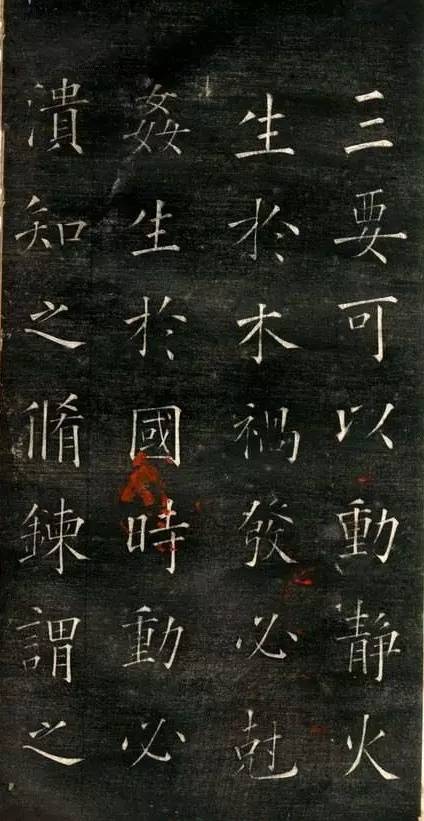 三要可以動静火
生於木禍發必尅
姦生於國時動必
潰知之脩鍊謂之